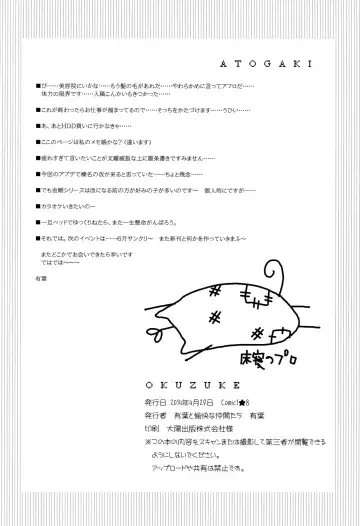 ATOGAKI
■び……美容院にいかな……もう髪の毛があれだ……やわらかめに言ってアフロだ……
体力の限界です……入稿こんかいもきつかった……
■これが終わったらお仕事が溜まってるので……そっちをかたづけます……うひい……
■あ、あとHDD買いに行かなきゃ……
■ここのページは私のメモ帳かな?(違います)
■疲れすぎて言いたいことが支離滅裂な上に箇条書きですみません……
■今回のアプデで榛名の改が来ると思っていた……ちょと残念……
■でも金剛シリーズは改になる前の方が好みの子が多いので~ 個人的にですが……
■カラオケいきたいのー
■一旦ベッドでゆっくりねたら、また一生懸命がんばろう。
■それでは。次のイベントは……6月サンクリ~ また新刊と何かを作っていきまふ~
またどこかでお会いできたら幸いです
ではでは~~~
有葉
床寝つプロ
OKUZUKE
発行日 2014年4月20日 Comic1★8
発行者 有葉と愉快な仲間たち 有葉
印刷 大陽出版株式会社様
※この本の内容をスキャンまたは撮影して第三者が閲覧できる
ようにしないでください。
アップロードや共有は禁止です。